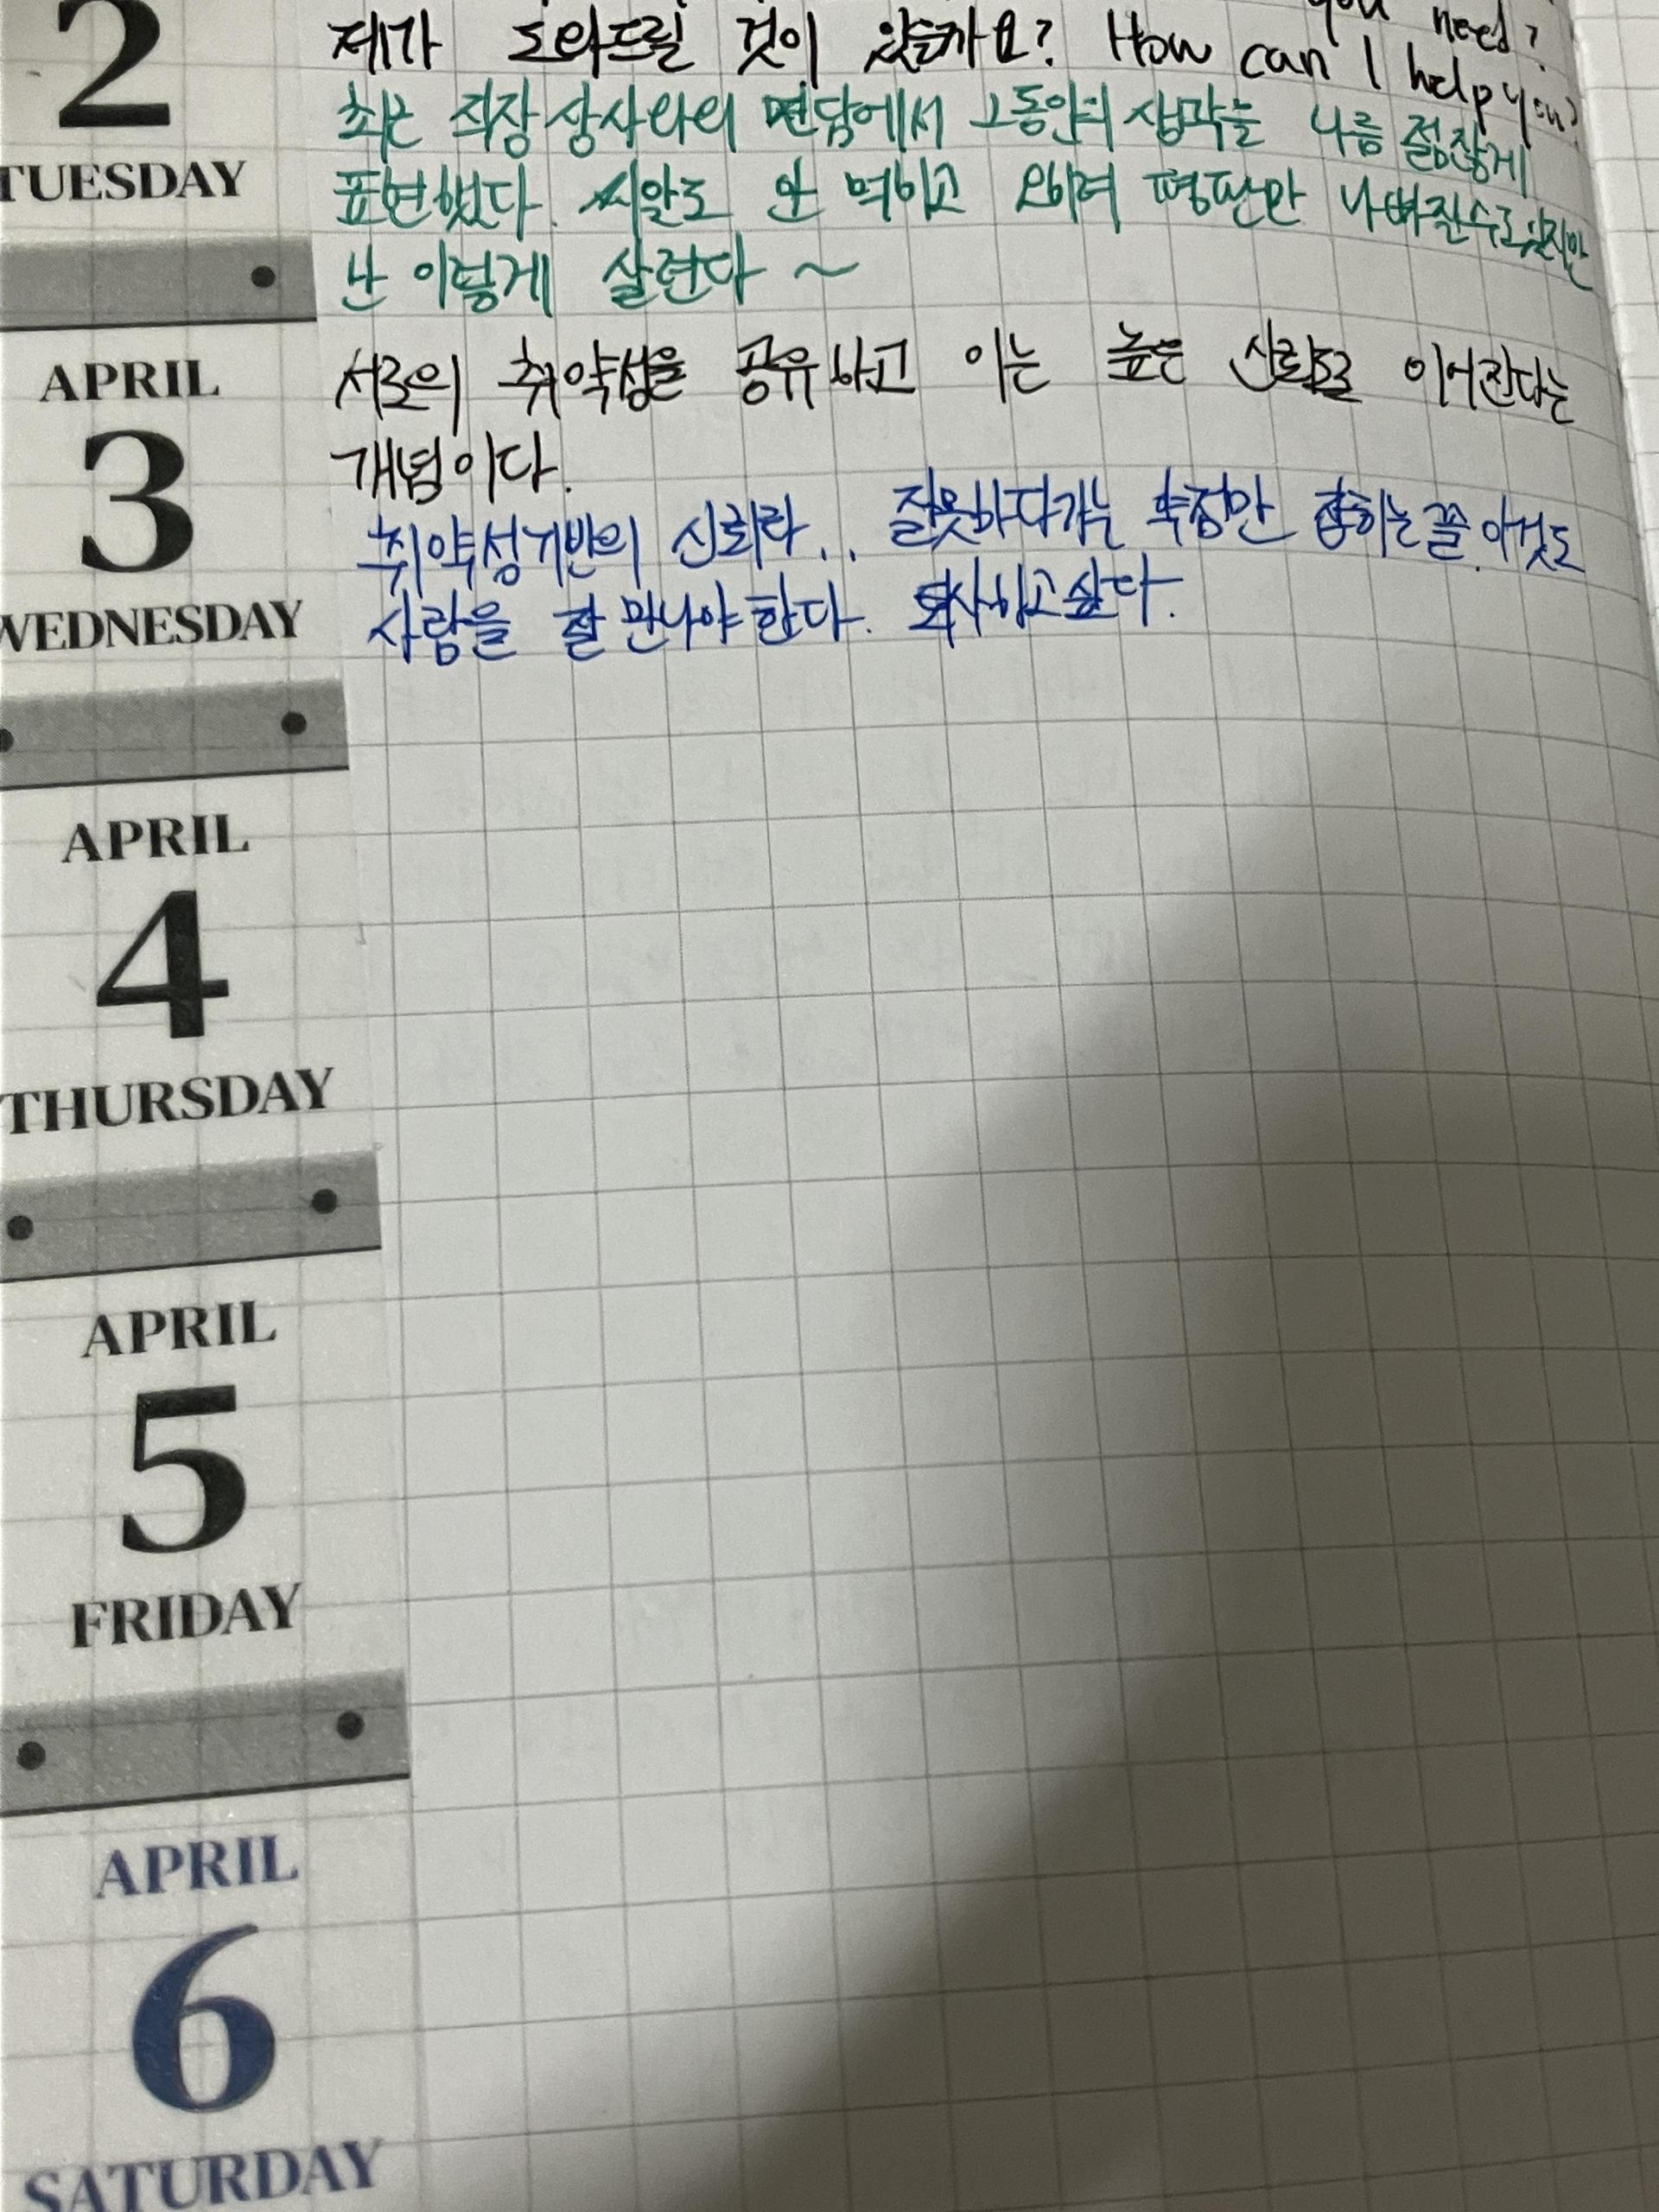 you need?
2
제가 도와드릴 것이 있는가요? How can I help you?
최근 직장 상사와의 면담에서 그동안의 생각을 나름 점잖게
TUESDAY
표현했다. 씨알도 안 먹히고 오히려 평판만 나빠질수도있지만
난 이렇게 살련다 ~
APRIL
3
WEDNESDAY
서로의 취약성을 공유하고 이는 높은 신뢰로 이어진다는
개념이다.
취약성기반의 신뢰라.. 잘못하다가는 약점만 잡히는 꼴. 이것도
사람을 잘 만나야 한다. 퇴사하고싶다.
APRIL
4
THURSDAY
APRIL
5
FRIDAY
APRIL
6
SATURDAY